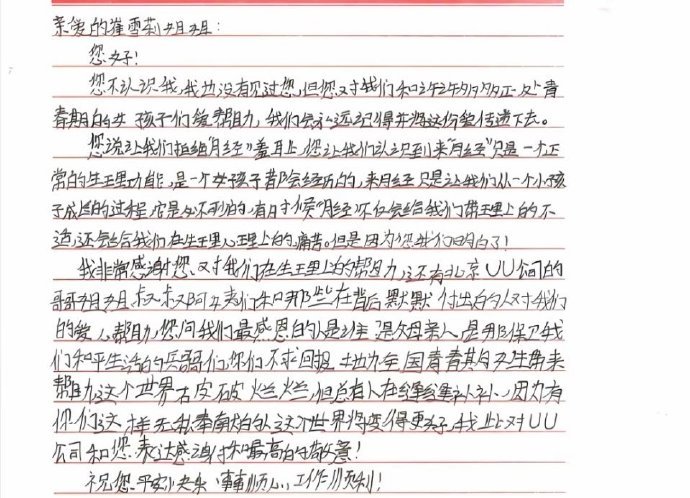 亲爱的崔雪莉姐姐：
您好！
您不认识我，我也没有见过您，但您对我们和许许多多正处青
春期的女孩子们爱帮助，我们会永远记得并将这份爱传递下去。
您说让我们拒绝"月经"羞耻，您让我们认识到来"月经"只是一个正
常的生理功能，是一个女孩子都会经历的，来月经只是让我们从一个小孩
子成长的过程，它是必不可怕的，有时候"月经"不仅会给我们带理上的不
适，还会给我们在生理心理上的痛苦。但是因为您我们明白了！
我非常感谢您，对我们在生理上的帮助，还有北京UU公司的
哥哥姐姐，叔叔阿姨们和那些在背后默默付出的人对我们
的爱，帮助，您问我们最感恩的人是谁，是父母亲人，是那保卫我
们和平生活的兵哥们，你们不求回报，地为全国青春期女生带来
帮助，这个世界古皮破烂烂，但总有人在缝缝补补，因为有
你们这样无私奉献的人这个世界将变得更好，我此对UU
公司和您表达感谢和最高的敬意！
祝您平安快乐，事事顺心，工作顺利！